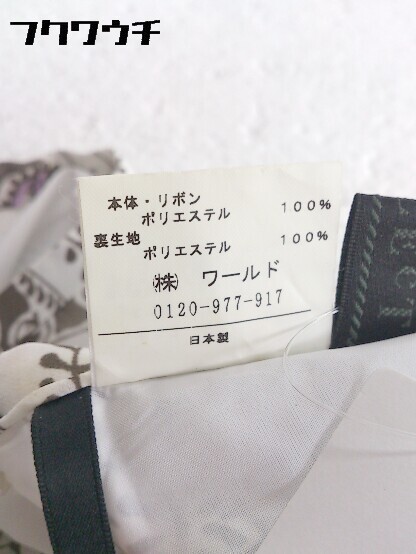 フクワウチ
本体・リボン
ポリエステル 100%
裏生地
ポリエステル 100%
㈱ ワールド
0120-977-917
日本製